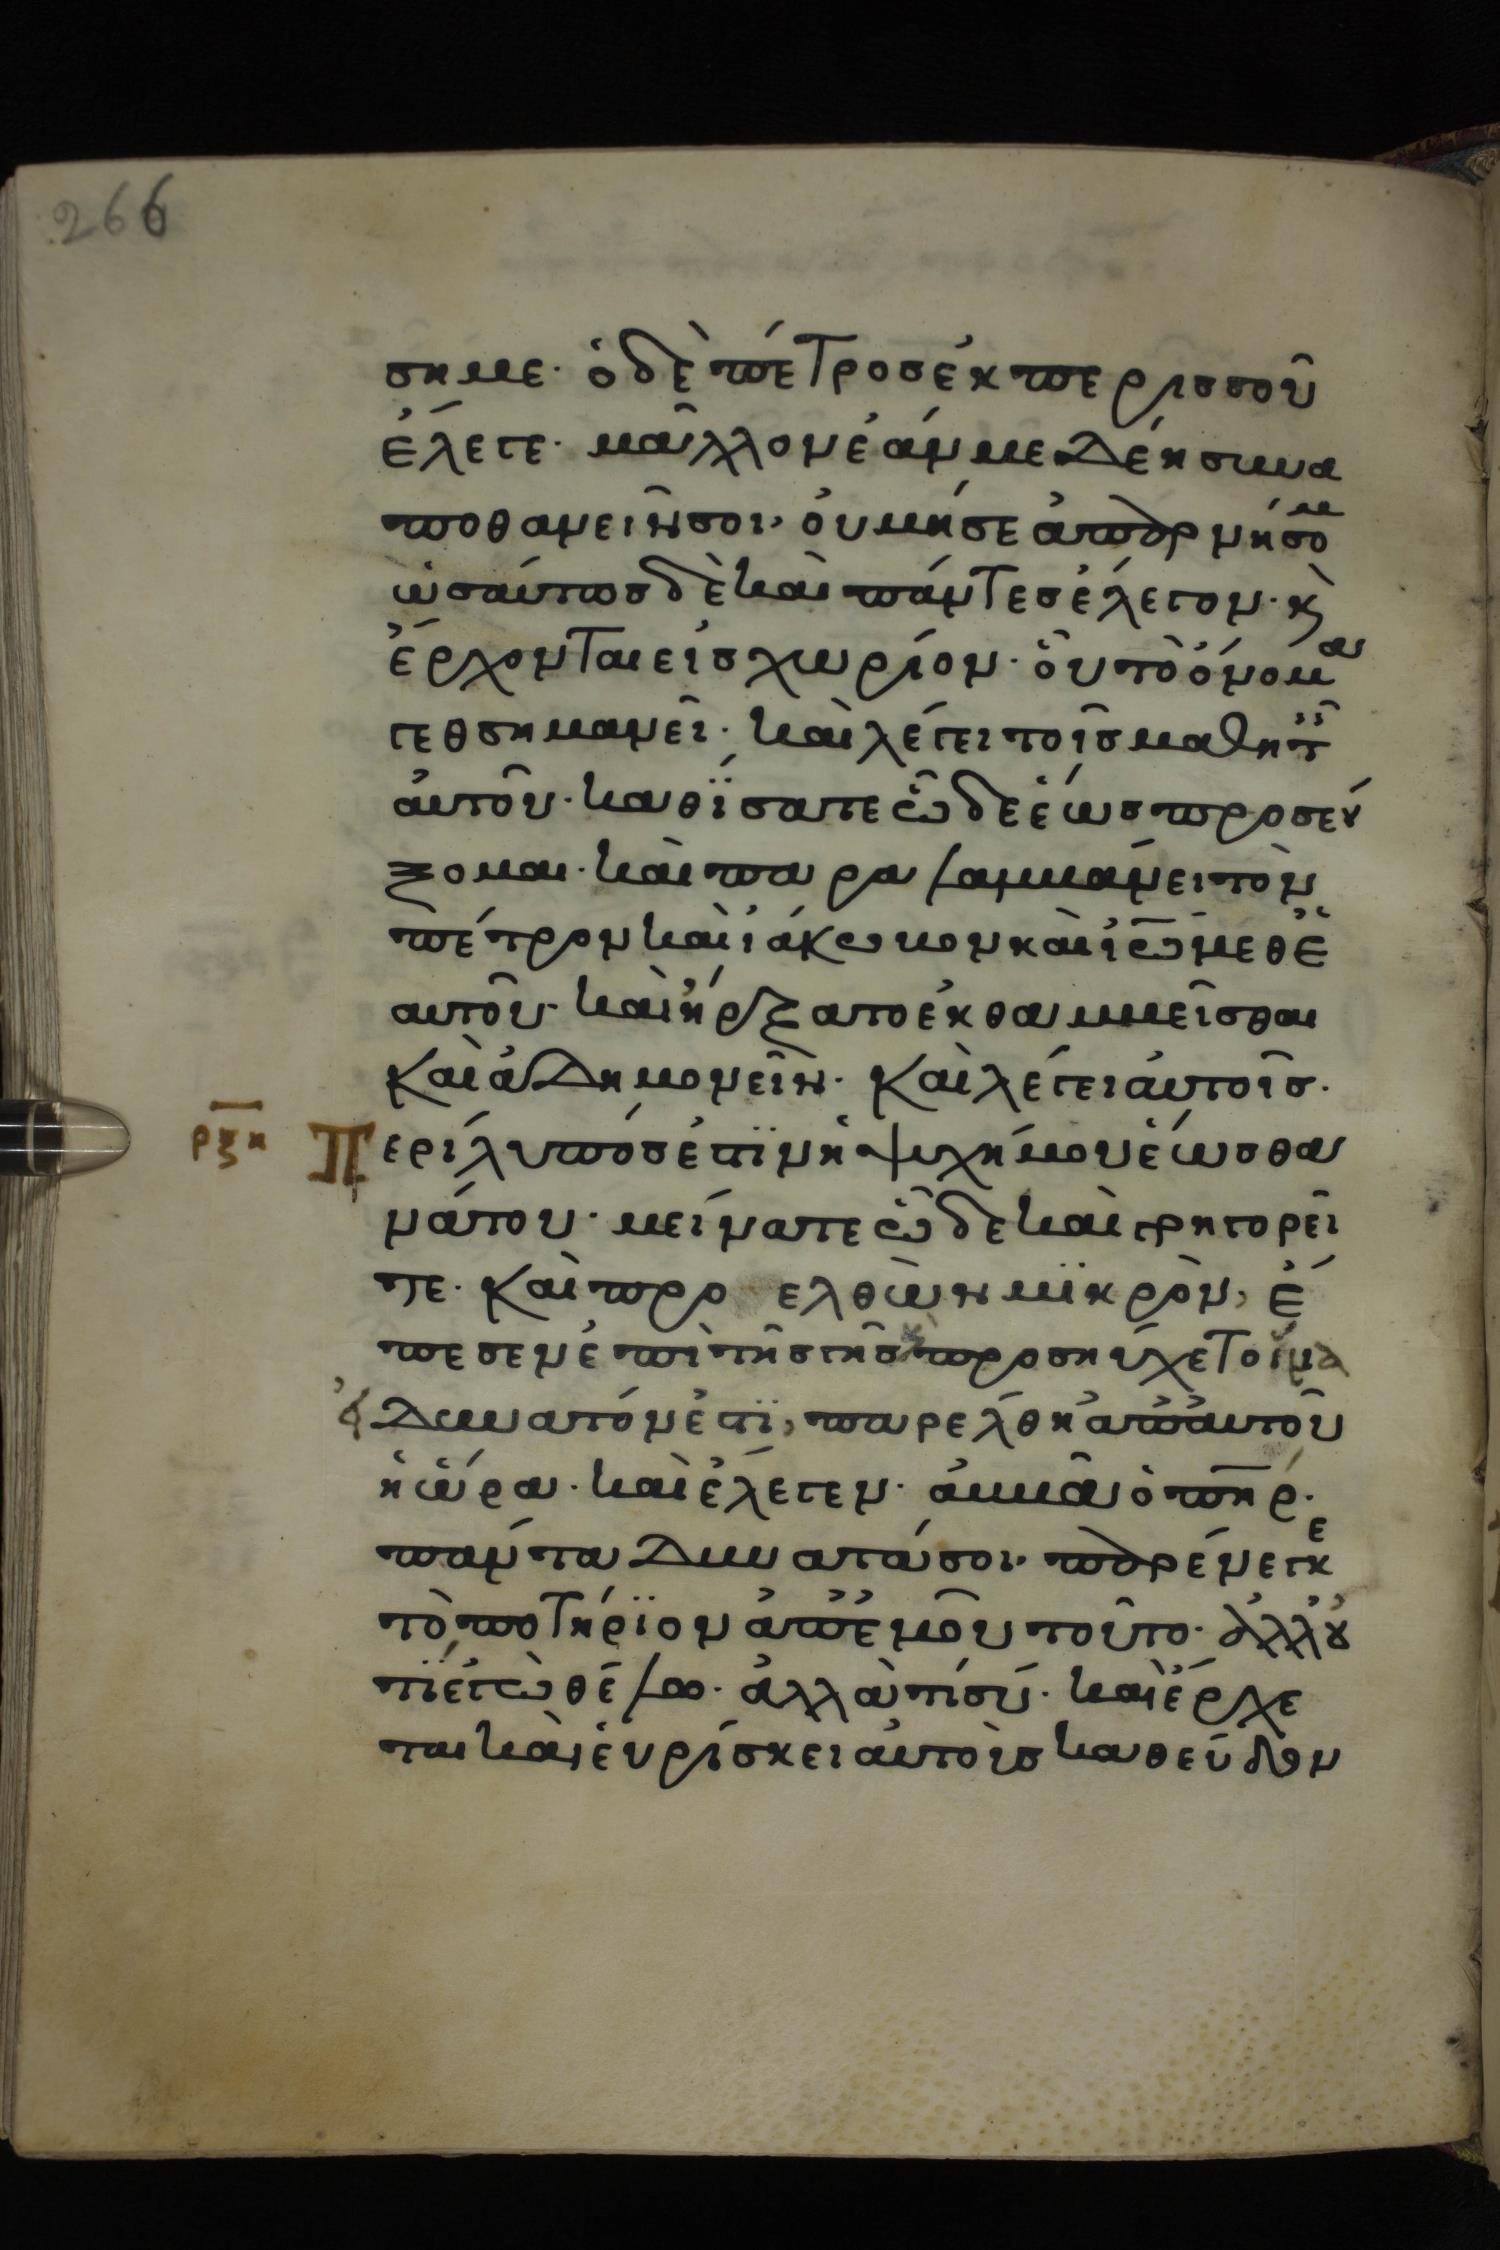 266
σημε· ὁ δὲ πέτροσ ἐκ περισσοῦ
ἔλεγε· μᾶλλον ἐάν με δέη συνα
ποθανεῖν σοι, οὐ μή σε ἀπαρνήσομ
ὡσαύτωσ δὲ καὶ πάντεσ ἔλεγον· κ̀
ἔρχονται εἰσ χωρίον· οὗ τὸ ὄνομα
γεθσημανεῖ· καὶ λέγει τοῖσ μαθητ
αὐτοῦ· καθΐσατε ὧδε ἕωσ προσεύ
ξομαι· καὶ παραλαμβάνει τὸν
πέτρον καὶ ἰάκωβον καὶ ἰω̅ν μεθ ἑ
αυτοῦ· καὶ ἤρξατο ἐκθαμβεῖσθαι
καὶ ἀδημονεῖν· καὶ λέγει αὐτοῖσ·
ρξη Περίλυποσ ἐστϊν ἡ ψυχή μου ἕωσ θα
νάτου· μείνατε ὧδε καὶ γρηγορεῖ
τε· καὶ προ ελθὼν μϊκρὸν, ἔ
πεσεν ἐπὶ τῆσ γῆσ κ̀ προσηύχετο ἵνα
εἰ δυνατόν ἐστϊ, παρέλθη ἀπ αὐτοῦ
ἡ ὥρα· καὶ ἔλεγεν· ἀββᾶ ὁ π̅η̅ρ·
πάντα δυνατά σοι· παρένεγκε
τὸ ποτήρϊον ἀπ ἐμοῦ τοῦτο· ἀλλ οὐ
τΐ ἐγὼ θέλω· ἀλλὰ τί σύ· καὶ ἔρχε
ται καὶ εὑρίσκει αὐτοὺσ καθεύδον